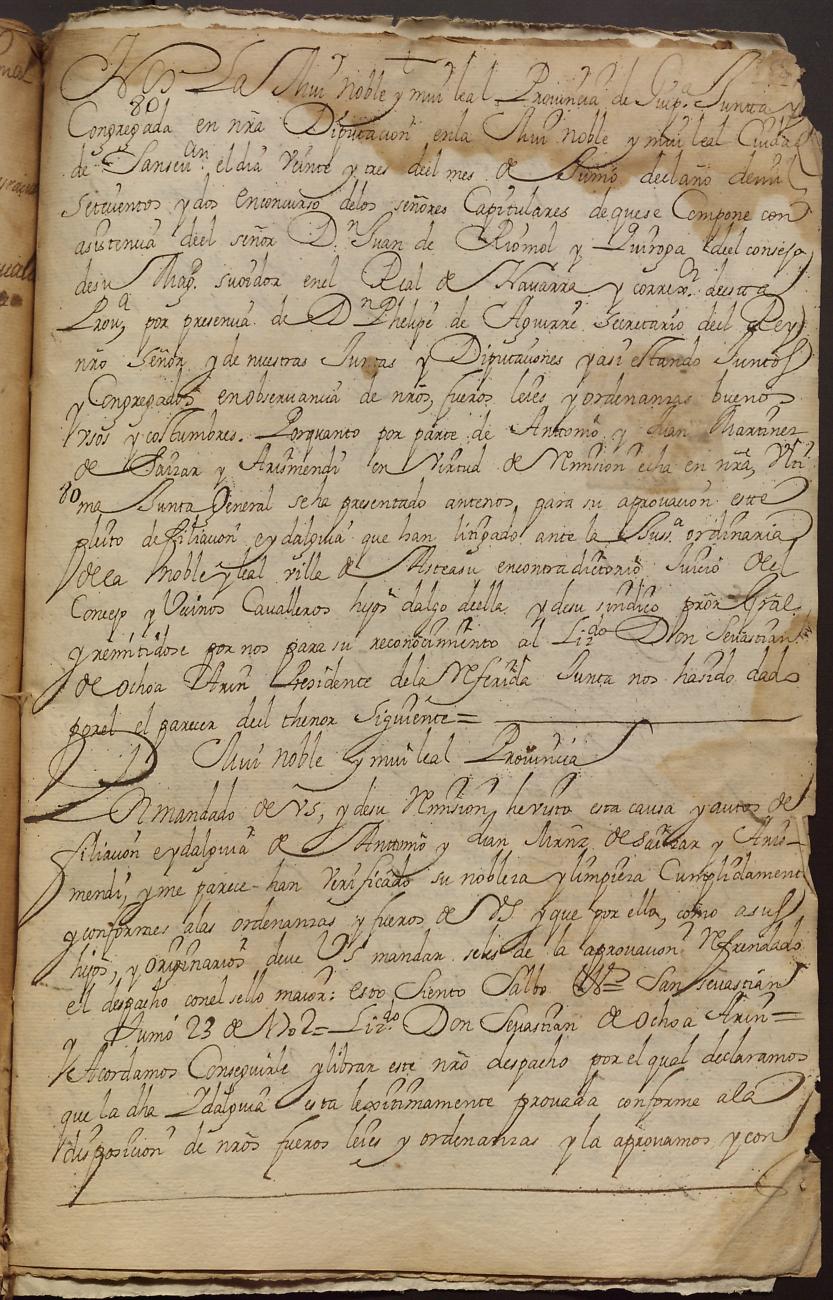 Nos La Mui noble y mui leal Prouincia de Guipª Juntta y
Congregada en nrã Diputacion en la Mui noble y mui leal Ciudad
de Sanseuan el dia Veinte y tres deel mes de Junio del año de mil
Setecientos y dos en concurso delos señores Capitulares de que se Compone con
asistencia deel señor Dn Juan de Riomol y Quiroga deel consejo
de su Magd su oidor en el Real de Navarra y correxor de estta
Prouª por presencia de Dn Phelipe de Aguirre Secretario deel Rey
nrõ Señor y de nuestras Juntas y Diputaciones y asi estando Juntos
y Congregados en obseruancia de nrõs fueros leies y ordenanzas buenos
Vsos y costumbres. Porquanto por parte de Anttonio y Juan Martinez
de Saizar y Arismendi en Virtud de Remision echa en nrã Vlti
ma Junta General se ha presentado antenos, para su aprouacion estte
pleito de filiacion e ydalguia que han litigado ante la Jussª ordinaria
de la noble y leal villa de Asteasu en contradictorio Juicio deel
Concejo y Vecinos Caualleros hijos dalgo deella y de su sindico prõr Gral.
y remitidose por nos para su reconocimiento al Lizdo Don Seuastian
de Ochoa Arin Presidente dela Referida Junta nos ha sido dado
por el el parecer deel thenor Siguiente=
Mui noble y mui leal Prouincia
De mandado de VS, y de su Remision, he visto esta causa y autos de
filiacion e ydalguia de Anttonio y Juan Mrñz de Saizar y Aris-
mendi, y me parece han Verificado su nobleza y limpieza Cumplidamente
y conformes alas ordenanzas y fueros de VS. y que por ello, como a sus
hijos, y originarios deue VS mandar seles de la aprouacion Refrendado
el despacho con el sello maior: esto Siento Salbo &ª San seuastian
y Junio 23 de 1702= Lizdo Don Seuastian de Ochoa Arin=
Acordamos Conseguirle y librar este nrõ despacho por el qual declaramos
que la dha Ydalguia esta lexitimamente prouada conforme a la
disposicion de nrõs fueros leies y ordenanzas y la aprouamos y con